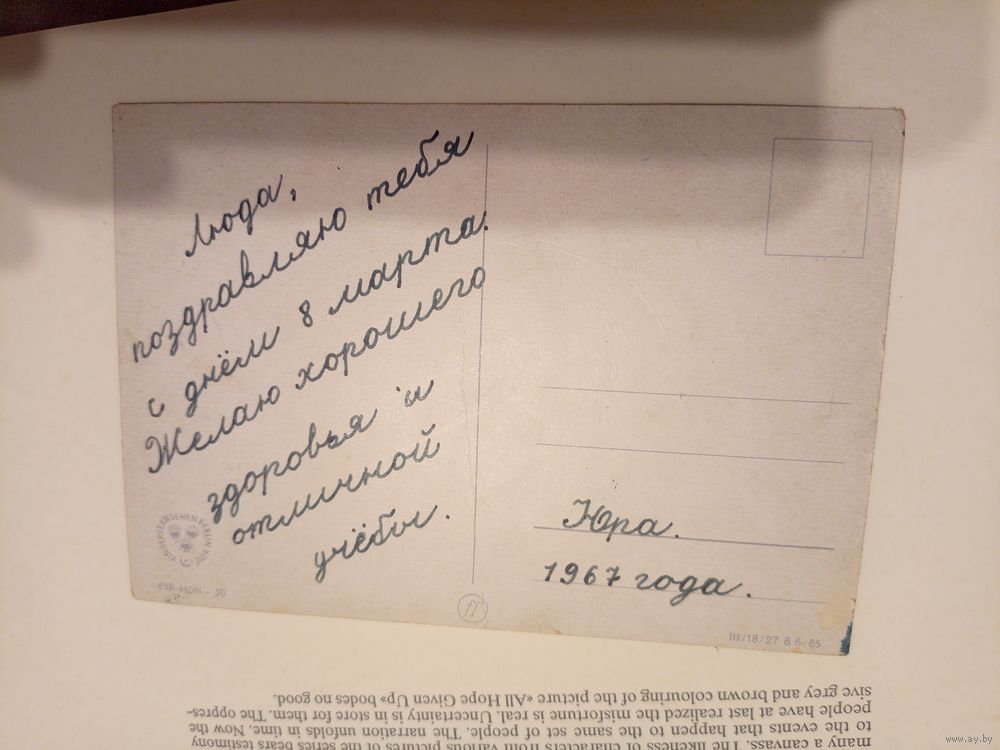 Люда,
поздравляю тебя
с днём 8 марта.
Желаю хорошего
здоровья и
отличной
учёбы.
Юра.
1967 года.
KINDERFERNSEHEN BERLIN
EVP MDN –,20
ff
III/18/27 B 6/65
many a canvass. The likeness of characters from various pictures of the series bears testimony
to the events that happen to the same set of people. The narration unfolds in time. Now the
people have at last realized the misfortune is real. Uncertainty is in store for them. The oppres-
sive grey and brown colouring of the picture «All Hope Given Up» bodes no good.
www.ay.by